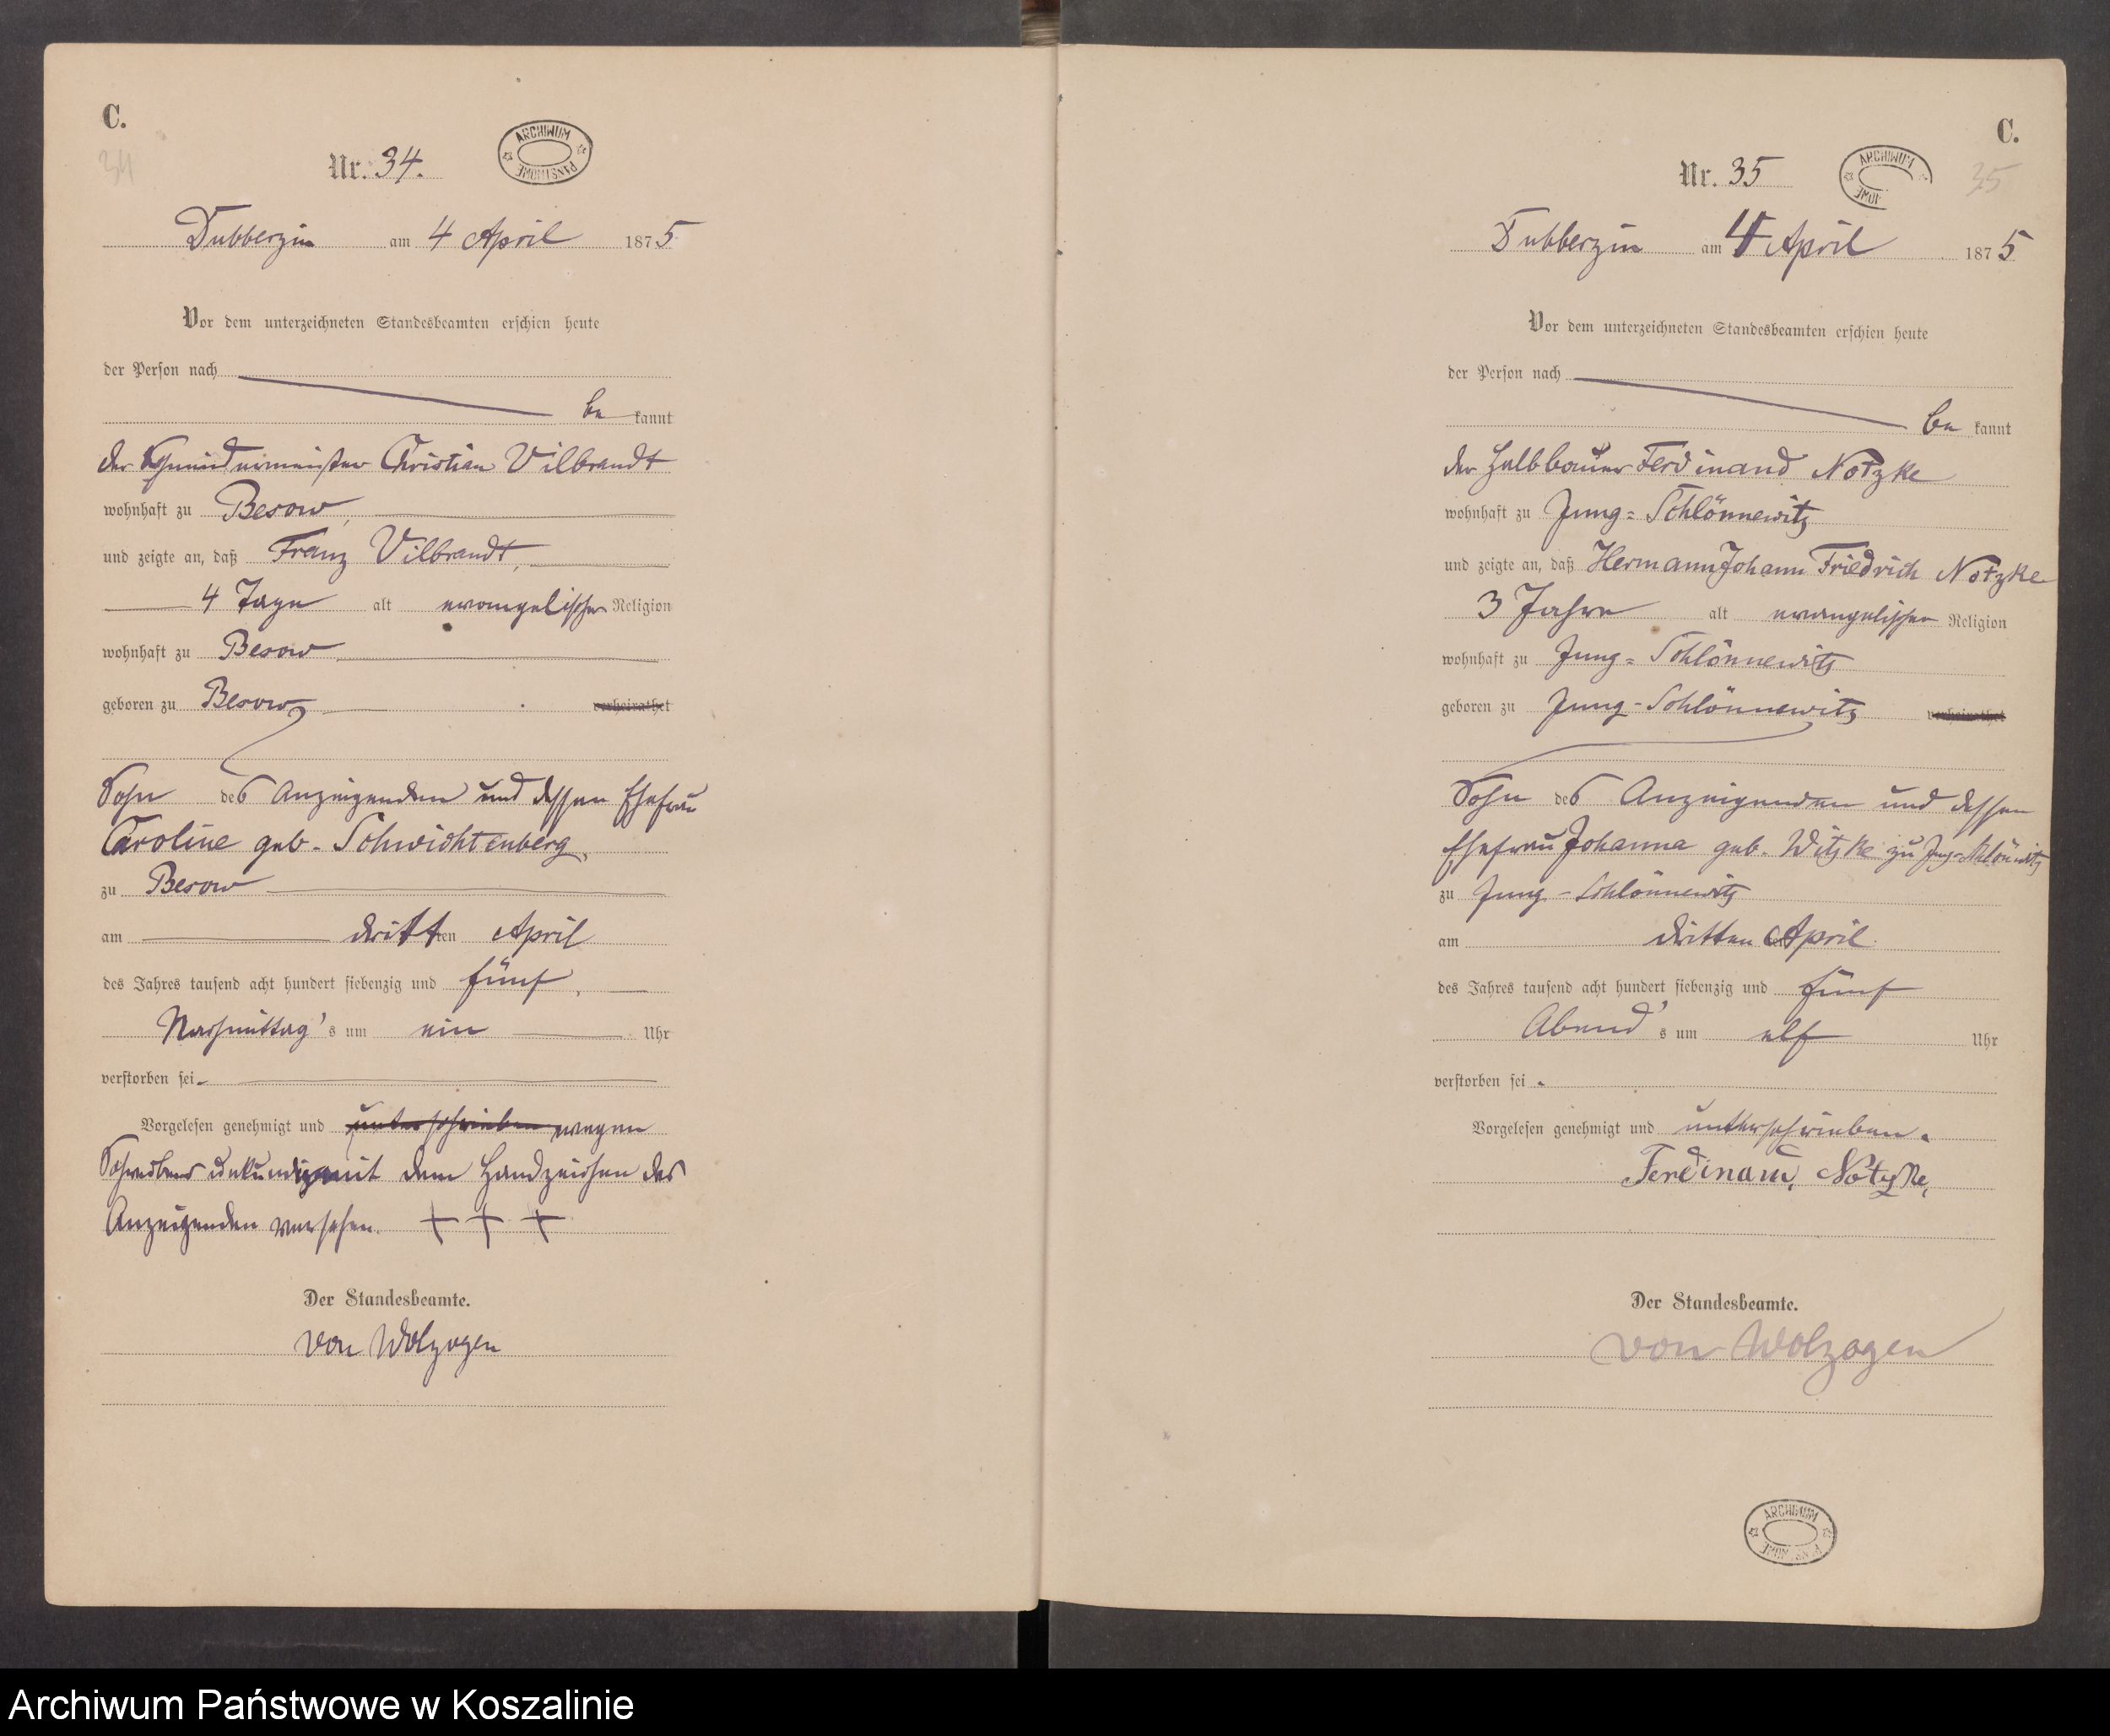 C.
34
Nr. 34.
ARCHIWUM PAŃSTWOWE
Dubberzin am 4 April 1875
Vor dem unterzeichneten Standesbeamten erschien heute
der Person nach
be kannt
der Christian Vilbrandt
wohnhaft zu Besow,
und zeigte an, daß Franz Vilbrandt,
4 Tage alt evangelischer Religion
wohnhaft zu Besow
geboren zu Besow verheirathet
Sohn des Anzeigenden und dessen Ehefrau
Caroline geb. Schwichtenberg,
zu Besow
am dritten April
des Jahres tausend acht hundert siebenzig und fünf,
Nachmittag's um ein Uhr
verstorben sei.
Vorgelesen genehmigt und unterschrieben wegen
Schreibens unkundig mit dem Handzeichen des
Anzeigenden versehen. + + +
Der Standesbeamte.
von Wolzogen
C.
35
Nr. 35
ARCHIWUM
Dubberzin am 4 April 1875
Vor dem unterzeichneten Standesbeamten erschien heute
der Person nach
be kannt
der Halbbauer Ferdinand Notzke
wohnhaft zu Jung=Schlönnewitz
und zeigte an, daß Hermann Johann Friedrich Notzke
3 Jahre alt evangelischer Religion
wohnhaft zu Jung=Schlönnewitz
geboren zu Jung-Schlönnewitz verheirathet
Sohn des Anzeigenden und dessen
Ehefrau Johanna geb. Witzke zu
zu Jung-Schlönnewitz
am dritten April
des Jahres tausend acht hundert siebenzig und fünf
Abend's um elf Uhr
verstorben sei.
Vorgelesen genehmigt und unterschrieben.
Ferdinand Notzke,
Der Standesbeamte.
von Wolzogen
ARCHIWUM PAŃSTWOWE
Archiwum Państwowe w Koszalinie